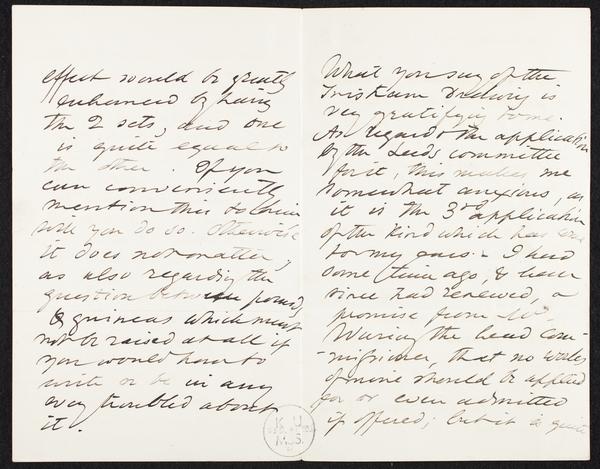 effect would be greatly
enhanced by having
the 2 sets, and one
is quite equal to
the other. If you
can conveniently
mention this to him
will you do so. Otherwise
it does not matter,
as also regarding the
question between pounds
& guineas which must
not be raised at all if
you would have to
write or be in any
way troubled about
it.
What you say of the
Tristram Drawing is
very gratifying to me.
As regards the application
by the Leeds committee
for it, this makes me
somewhat anxious, as
it is the 3rd application
of the kind which has come
to my ears. I had
some time ago, & have
since had renewed, a
promise from Mr
Waring the head com-
-missioner, that no works
of mine should be applied
for or even admitted
if offered; but it is quite
K U
MSS.